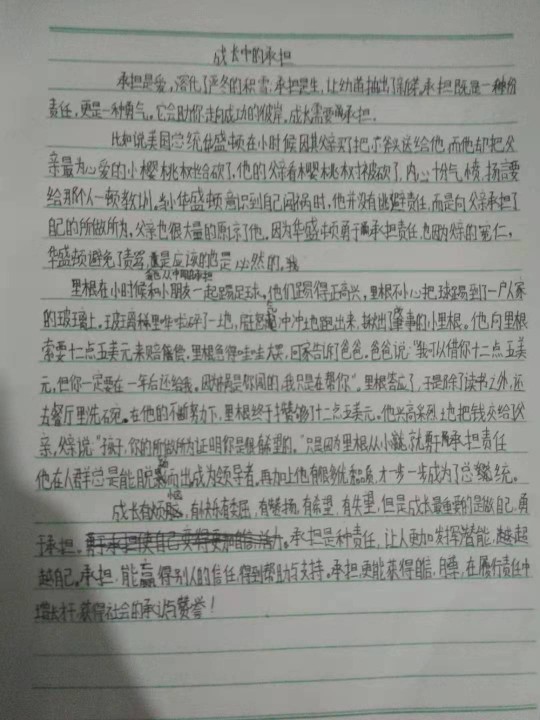 成长中的承担
承担是爱,溶化了严冬的积雪;承担是生,让幼苗抽出了新芽。承担既是一种份
责任,更是一种勇气。它会助你走向成功的彼岸,成长需要承担.
比如说美国总统华盛顿在小时候因其父亲买了把小斧头送给他,而他却把父
亲最为心爱的小樱桃树给砍了,他的父亲看樱桃树被砍了,内心十分气愤,扬言要
给那个人一顿教训。当小华盛顿意识到自己闯祸时,他并没有逃避责任,而是向父亲承担了
自己的所做所为,父亲也很大量的原谅了他。因为华盛顿勇于承担责任,也因为父亲的宽仁,
华盛顿避免了责骂,这是应该的也是必然的。
里根在小时候和小朋友一起踢足球。他们踢得正高兴,里根不小心把球踢到了一户人家
的玻璃上,玻璃稀里哗啦碎了一地,屋主怒气冲冲地跑出来,揪出了肇事的小里根。他向里根
索要十二点五美元来赔偿,里根急得哇哇大哭,回家告诉了爸爸。爸爸说:“我可以借你十二点五美
元,但你一定要在一年后还给我。因为祸是你闯的,我只是在帮你”。里根答应了,于是除了读书之外,还
去餐厅里洗碗。在他的不断努力下,里根终于攒够了十二点五美元。他兴高采烈地把钱交给父
亲,父亲说:“孩子,你的所做所为证明你是很有希望的。”只是因为里根从小就勇于承担责任
他在人群总是能脱颖而出成为领导者,再加上他有很多优秀品质,才一步一步成为了总统。
成长有烦恼,有快乐有委屈,有赞扬,有希望,有失望,但是成长最重要的是做自己,勇
于承担。承担是种责任,让人更加发挥潜能,超越
越自己。承担,能赢得别人的信任,得到帮助与支持。承担,更能获得自信,自尊,在履行责任中
增长才干,获得社会的承认与赞誉!